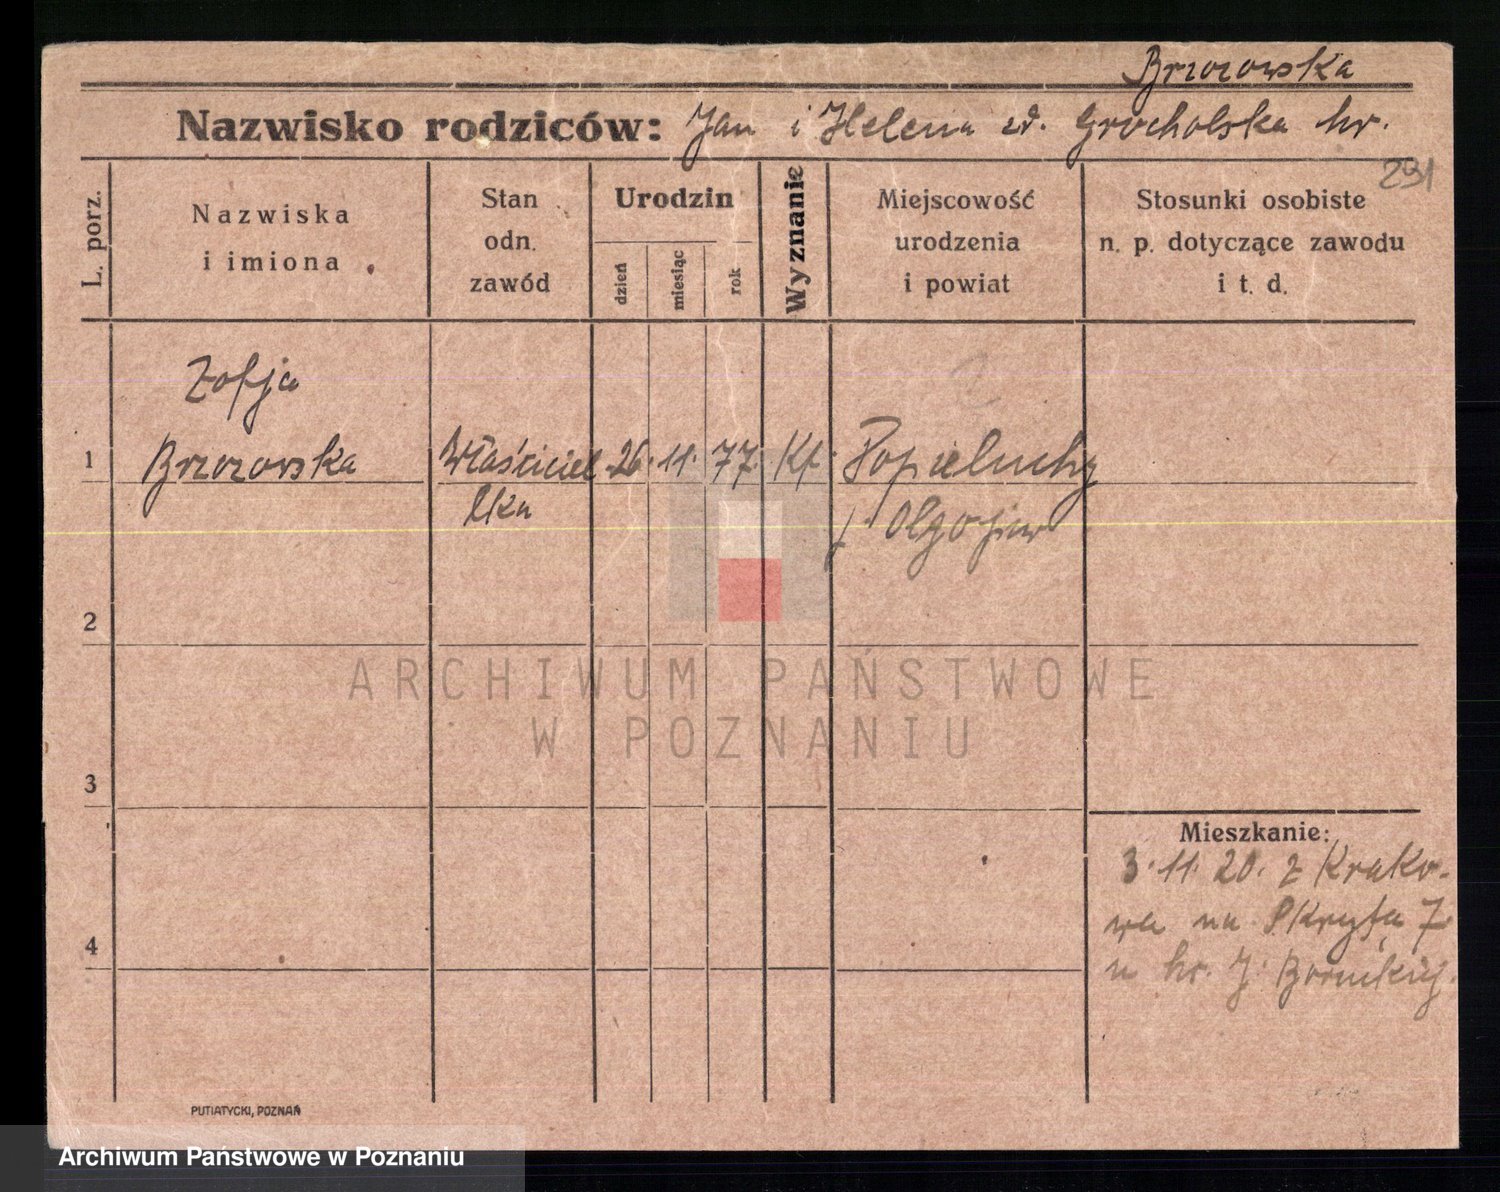 Brzozowska
Nazwisko rodziców: Jan i Helena zd. Grocholska hr.
231
L. porz.
Nazwiska
i imiona
Stan
odn.
zawód
Urodzin
dzień
miesiąc
rok
Wyznanie
Miejscowość
urodzenia
i powiat
Stosunki osobiste
n. p. dotyczące zawodu
i t. d.
Zofja
1 Brzozowska Właściciel 26. 11. 77. Kt. Popieluchy
lka p. Olgopiew
2
ARCHIWUM PAŃSTWOWE
W POZNANIU
3
Mieszkanie:
3. 11. 20. z Krako-
wa na 7
4
u hr. J.
PUTIATYCKI, POZNAŃ
Archiwum Państwowe w Poznaniu